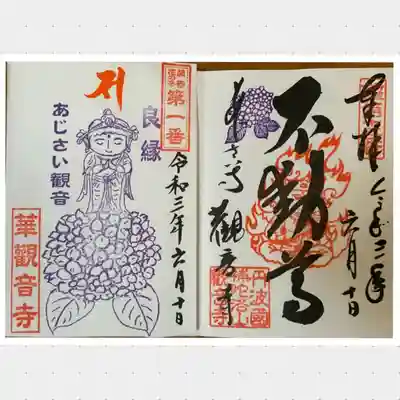 奉拝
令和三年
六月十日
不動尊
あじさい寺
觀音寺
丹波國
補陀落山
觀音寺
第一番
良縁
令和三年六月十日
あじさい観音
華觀音寺